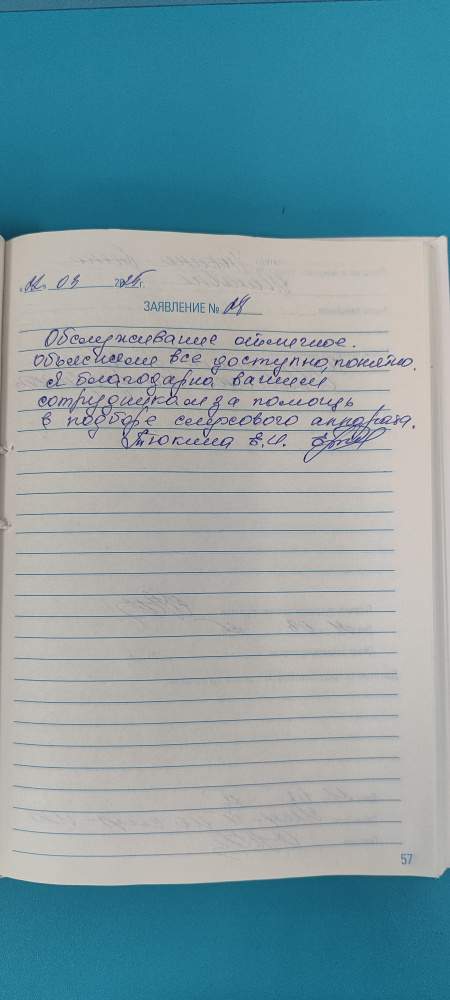 03 2025г.
ЗАЯВЛЕНИЕ №
Обслуживание отличное.
Объяснили все доступно, понятно.
Я благодарна вашим
сотрудникам за помощь
в подборе слухового аппарата.
Тюкина Е.И.
57